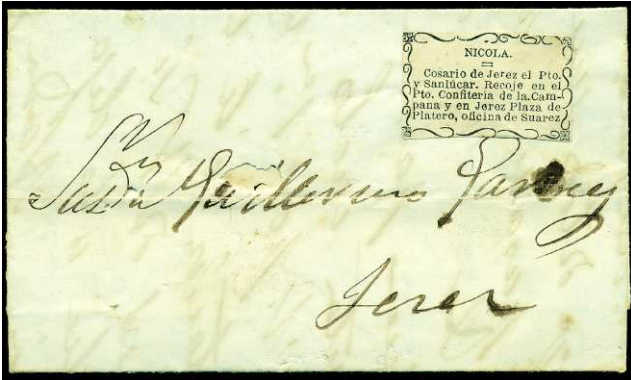 NICOLA.
Cosario de Jerez el Pto.
y Sanlúcar. Recoje en el
Pto. Confitería de la Cam-
pana y en Jerez Plaza de
Platero, oficina de Suarez
Guillermo
Jerez